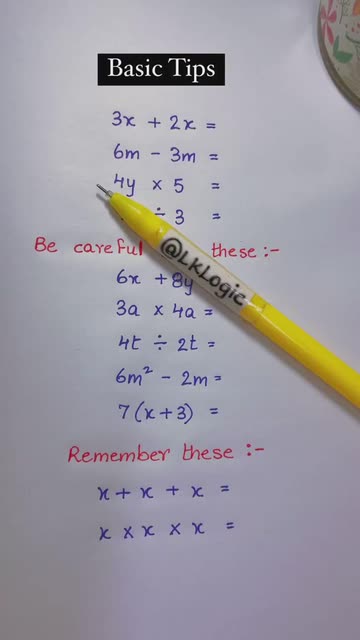 Basic Tips
3x + 2x =
6m - 3m =
4y × 5 =
÷ 3 =
Be careful these :-
@LKLogic
6x + 8y
3a × 4a =
4t ÷ 2t =
6m² - 2m =
7(x+3) =
Remember these :-
x + x + x =
x × x × x =